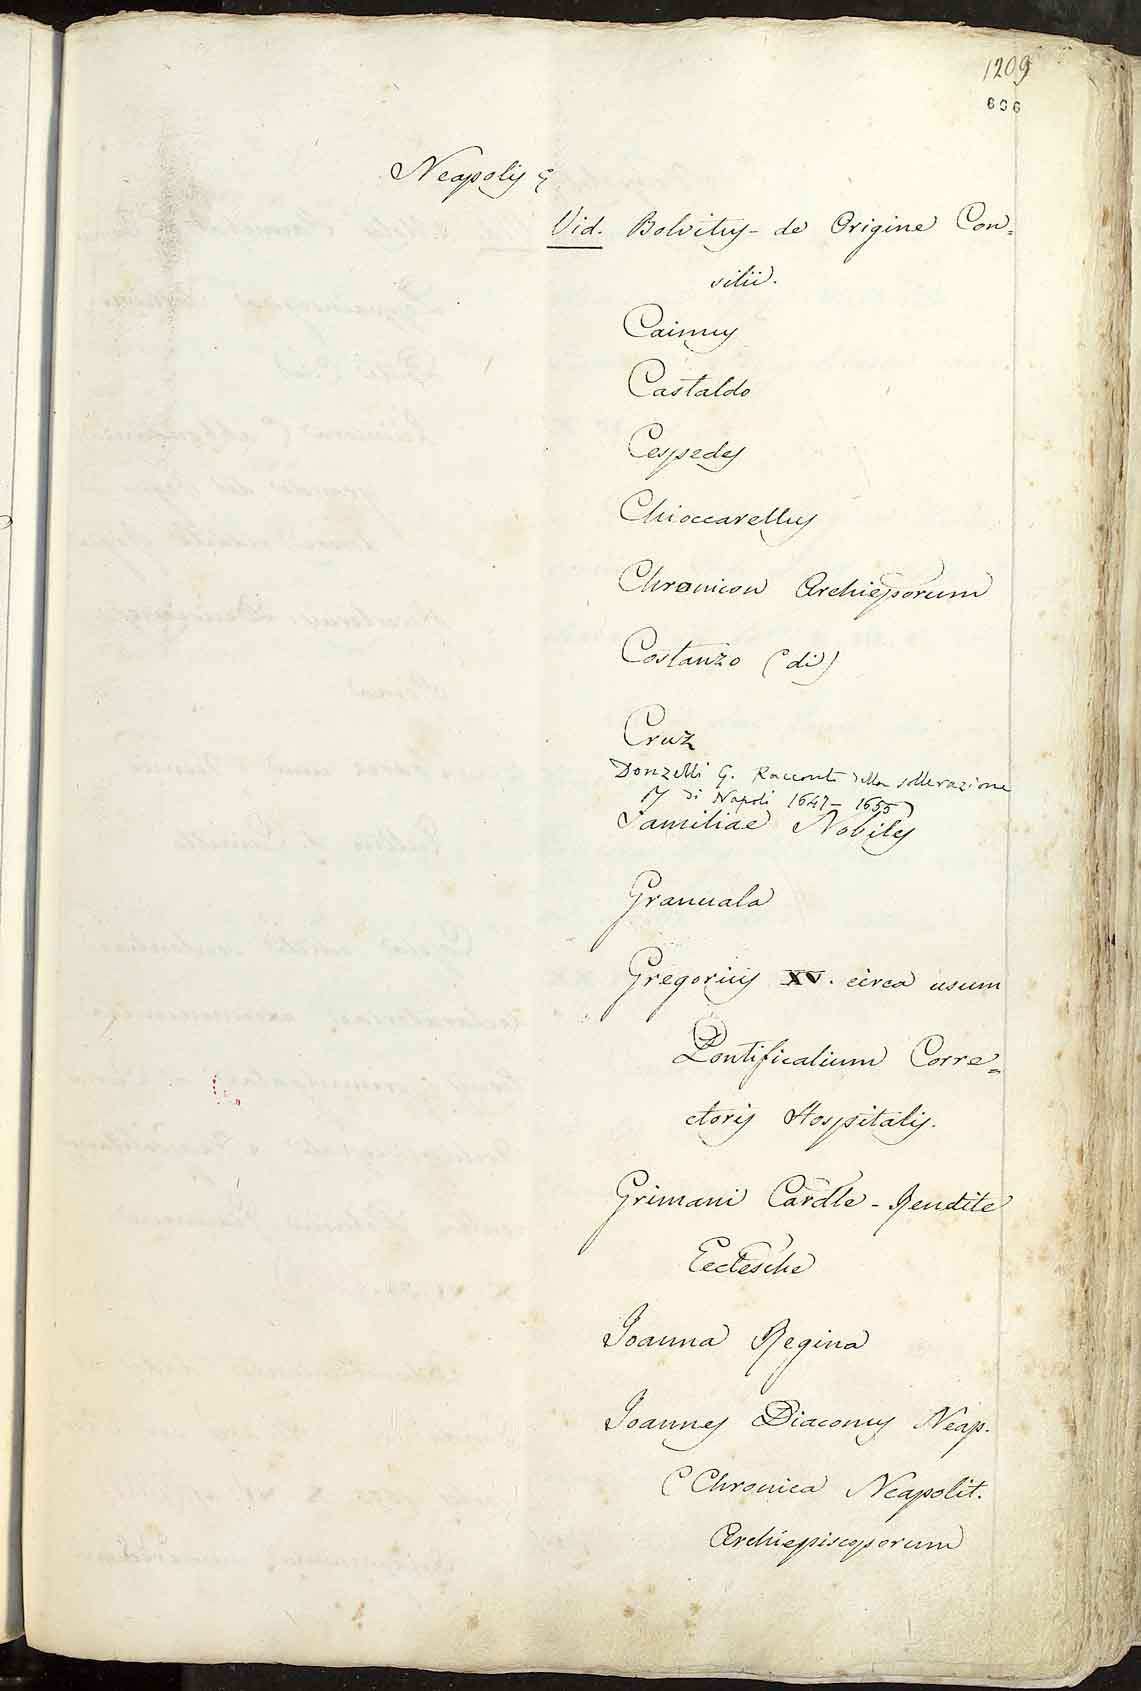 1209
606
Neapolis
Vid. Bolvitus - de Origine Con=
silii.
Caimus
Castaldo
Cespedes
Chioccarellus
Chronicon Archieporum
Costanzo (di)
Cruz
Donzelli G. Racconti della sollevazione
di Napoli 1647 - 1655
Familiae Nobiles
Granuala
Gregorius XV. circa usum
Pontificalium Corre=
ctoris Hospitalis.
Grimani Cardle - Rendite
Ecclesche
Joanna Regina
Joannes Diaconus Neap.
(Chronica Neapolit.
Archiepiscoporum